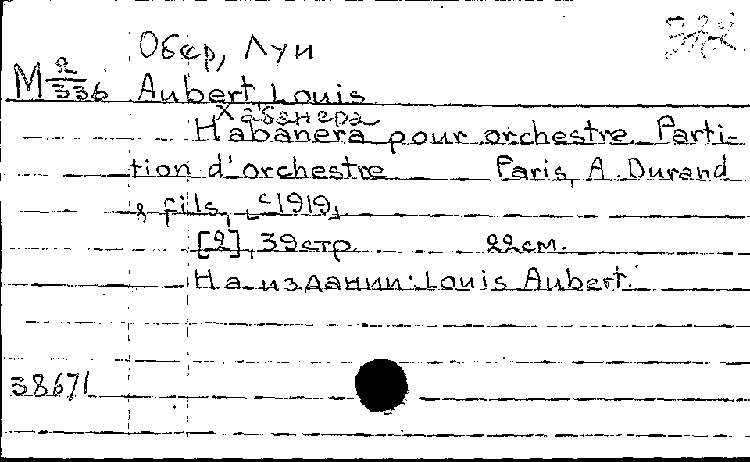 Обер, Луи
М 2/336 Aubert Louis
Хабанера
Habanera pour orchestre. Parti-
tion d'orchestre Paris, A. Durand
& fils, [c1919]
[2], 39 стр. 22 см.
На издании: Louis Aubert.
38671